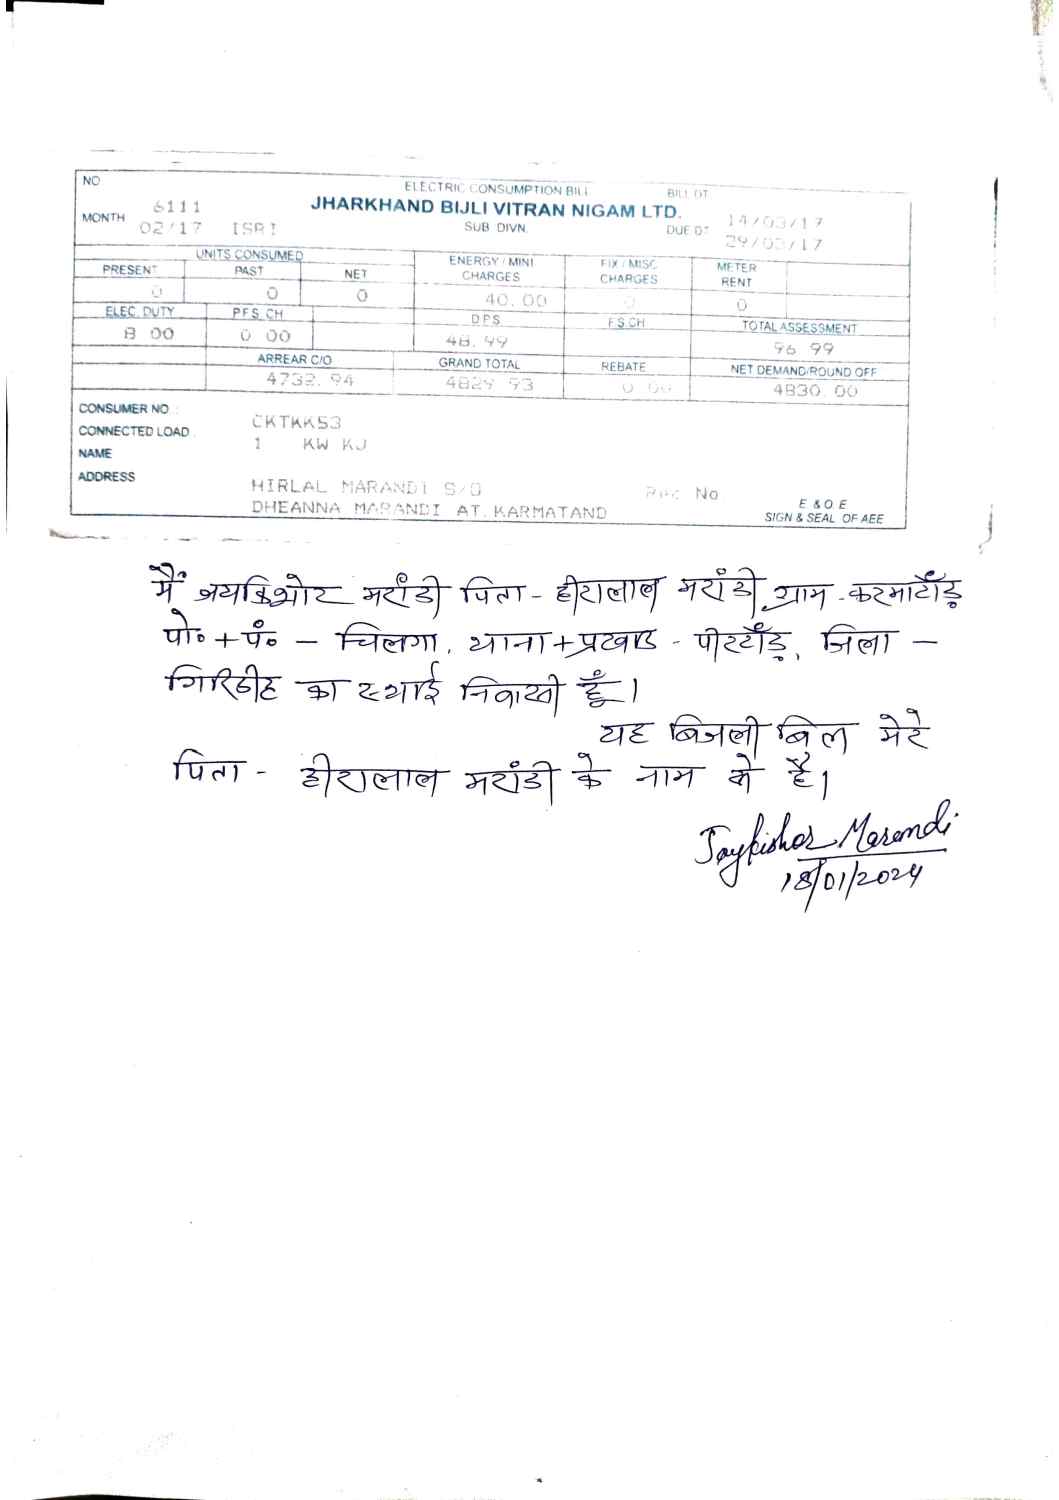 NO 6111 ELECTRIC CONSUMPTION BILL BILL DT 14/03/17
JHARKHAND BIJLI VITRAN NIGAM LTD.
MONTH 02/17 ISRI SUB DIVN. DUE DT 29/03/17
UNITS CONSUMED ENERGY / MINI CHARGES FIX / MISC CHARGES METER RENT
PRESENT PAST NET
0 0 0 40.00 0 0
ELEC. DUTY PFS. CH DPS F.S.CH TOTAL ASSESSMENT
8 00 0 00 48.99 96 99
ARREAR C/O GRAND TOTAL REBATE NET DEMAND/ROUND OFF
4732.94 4829 93 0 00 4830.00
CONSUMER NO : CKTKK53
CONNECTED LOAD : 1 KW KJ
NAME
ADDRESS HIRLAL MARANDI S/O Rec No
DHEANNA MARANDI AT. KARMATAND
E & O E
SIGN & SEAL OF AEE
मैं जयकिशोर मरांडी पिता - हीरालाल मरांडी ग्राम - करमाटाँड़
पो० + पं० - चिलगा, थाना + प्रखण्ड - पीरटाँड़, जिला -
गिरिडीह का स्थाई निवासी हूँ।
यह बिजली बिल मेरे
पिता - हीरालाल मरांडी के नाम से है।
Jaykishor Marandi
18/01/2024